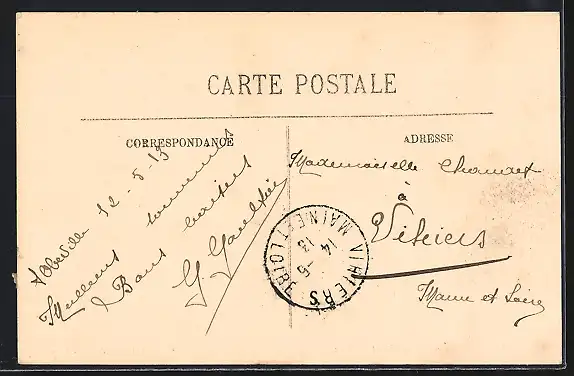 CARTE POSTALE
CORRESPONDANCE
ADRESSE
Abbeville 12-5-13
Meilleurs souvenirs
Bons baisers
G Gaultier
Mademoiselle
à
Vihiers
Maine et Loire
VIHIERS
MAINE ET LOIRE
14 -5
13